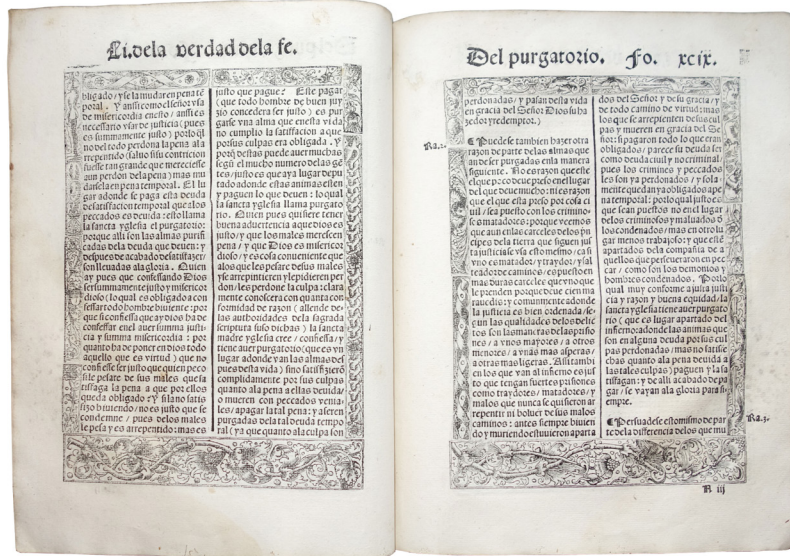 Li. dela verdad dela fe.
bligado / y se la mudaren pena tẽ
poral. Y ansi como el señor vsa
de misericordia en esto / ansi es
necessario vsar de justicia ( pues
es summamente justo ) por lo q̃l
no del todo perdona la pena al a
rrepentido (saluo si su contricion
fuesse tan grande que mereciesse
aun perdon dela pena) mas mu
dansela en pena temporal. El lu
gar adonde se paga esta deuda
de satisfacion temporal que a los
peccados es deuida: esto llama
la sancta yglesia el purgatorio:
porque alli son las almas purifi
cadas dela deuda que deuen: y
despues de acabado de satisfazer/
son lleuadas ala gloria. Quien
ay pues que confessando Dios
ser summamente justo y misericor
dioso (lo qual es obligado a con
fessar todo hombre biuiente: por
que si confiessa que ay dios ha de
confessar en el auer summa justi-
cia y summa misericordia : por
quanto ha de poner en dios todo
aquello que es virtud ) que no
confiesse ser justo que quien peco
si le pesare de sus males que sa
tisfaga la pena a que por ellos
queda obligado : y si la no satis
fizo biuiendo/ no es justo que se
condemne / pues delos males
le pesa y es arrepentido: mas es
justo que pague? Este pagar
(que todo hombre de buen juy
zio concedera ser justo) es pur
garse vna alma que en esta vida
no cumplio la satisfacion a que
por sus culpas era obligada. Y
porq̃ destas puede auer muchas
segũ el mucho numero delas gẽ
tes / justo es que aya lugar depu
tado adonde estas animas esten
y paguen lo que deuen : lo qual
la sancta yglesia llama purgato
rio. Quien pues quisiere tener
buena aduertencia a que Dios es
justo / y que los males merescen
pena / y que Dios es misericor
dioso / y es cosa conueniente que
a los que les pesare de sus males
y se arrepintieren y le pidieren per
don / les perdone la culpa: clara
mente conoscera con quanta con
formidad de razon ( allende de
las autoridades dela sagrada
scriptura suso dichas) la sancta
madre yglesia cree / confiessa / y
tiene auer purgatorio (que es vn
lugar adonde van las almas des
pues desta vida) sino satisfizierõ
complidamente por sus culpas
quanto ala pena a ellas deuida/
o mueren con peccados venia-
les / a pagar la tal pena: y a seren
purgadas dela tal deuda tempo
ral (ya que quanto ala culpa son
Del purgatorio. Fo. xcix.
perdonadas / y pasan desta vida
en gracia del Señor Dios su ha
zedor y redemptor.)
Ra.2.
¶ Puede se tambien hazer otra
razon de parte delas almas que
an de ser purgadas en la manera
siguiente. No es razon que este
el que peco de un peso en el lugar
del que deue mucho: ni es razon
que el que esta preso por cosa ci
uil / sea puesto con los crimino-
ses matadores: porque veemos
que aun en las carceles delos prĩ
cipes dela tierra que siguen jus
ta justicia se vsa esto mismo; ca si
vno es matador / y traydor / y sal
teador de caminos / es puesto en
mas duras carceles que vno que
le prenden porque deue cien ma
rauedis: y comunmente adonde
la justicia es bien ordenada / se-
gun las qualidades delos delic
tos son las maneras delas prisio
nes / a vnos mayores / a otros
menores / a vnas mas asperas /
a otras mas ligeras. Assi tambi
en los que van al infierno es jus
to que tengan fuertes prisiones
como traydores / matadores / y
malos que nunca se quisieron ar
repentir ni boluer de sus malos
caminos : antes siempre biuien
do y muriendo estuuieron aparta
dos del Señor y de su gracia / y
de todo camino de virtud: mas
los que se arrepienten de sus cul
pas y mueren en gracia del Se-
ñor: si pagaron todo lo que eran
obligados / parece su deuda ser
como deuda ciuil y no criminal:
pues los crimines y peccados
les son ya perdonados / y sola-
mente quedan ya obligados a pe
na temporal : por lo qual justo es
que sean puestos no en el lugar
delos criminosos y maluados o
los condenados / mas en otro lu
gar menos trabajoso: y que este
apartados dela compañia de a
quellos que perseueraron en pec
car / como son los demonios y
hombres condenados. Por lo
qual muy conforme a jura justi
cia y razon y buena equidad / la
sancta yglesia tiene auer purgato
rio ( que es lugar apartado del
infierno: adonde las animas que
son en alguna deuda por sus cul
pas perdonadas / mas no satisfe
chas quanto ala pena deuida a
las tales culpas) paguen y la sa
tisfagan : y de alli acabado de pa
gar / se vayan ala gloria para si
empre.
¶ Persuade se esto mismo de par
te dela differencia delos que mu
Ra.3.
R iij